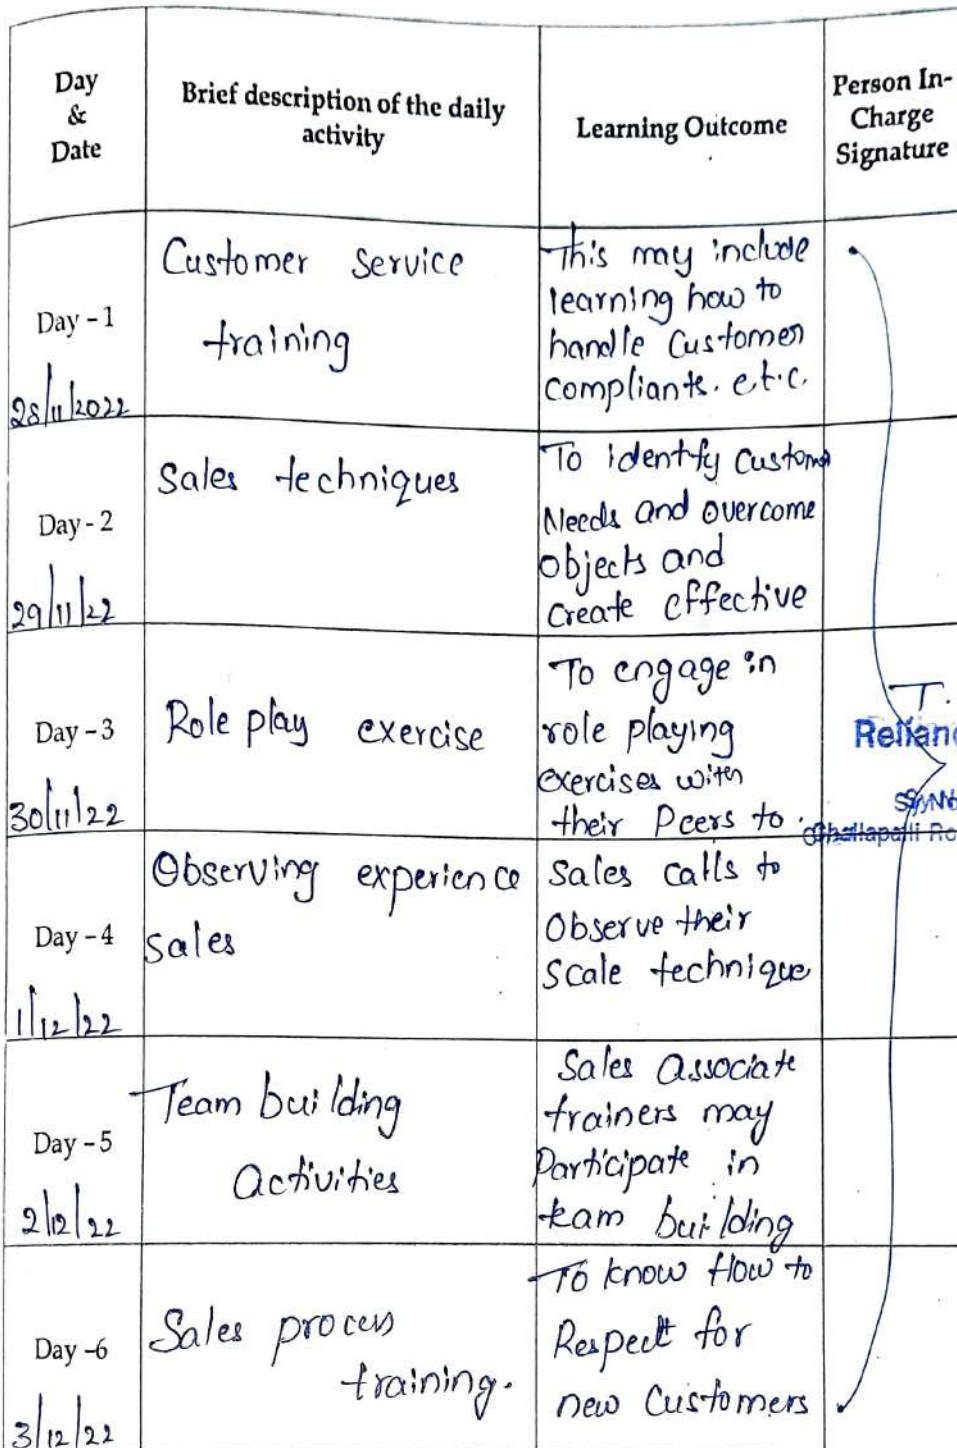 Day
&
Date
Brief description of the daily
activity
Learning Outcome
Person In-
Charge
Signature
Day - 1
28/11/2022
Customer service
training
This may include
learning how to
handle Customer
compliants. e.t.c.
Day - 2
29/11/22
Sales techniques
To identify Custom
Needs and overcome
objects and
create effective
Day - 3
30/11/22
Role play exercise
To engage in
role playing
exercises with
their Peers to.
T.
Relian
Challapalli Ro
Day - 4
1/12/22
Observing experience
sales
Sales calls to
Observe their
Scale technique
Day - 5
2/12/22
Team building
Activities
Sales Associate
trainers may
Participate in
team building
Day -6
3/12/22
Sales process
training.
To know How to
Respect for
new Customers